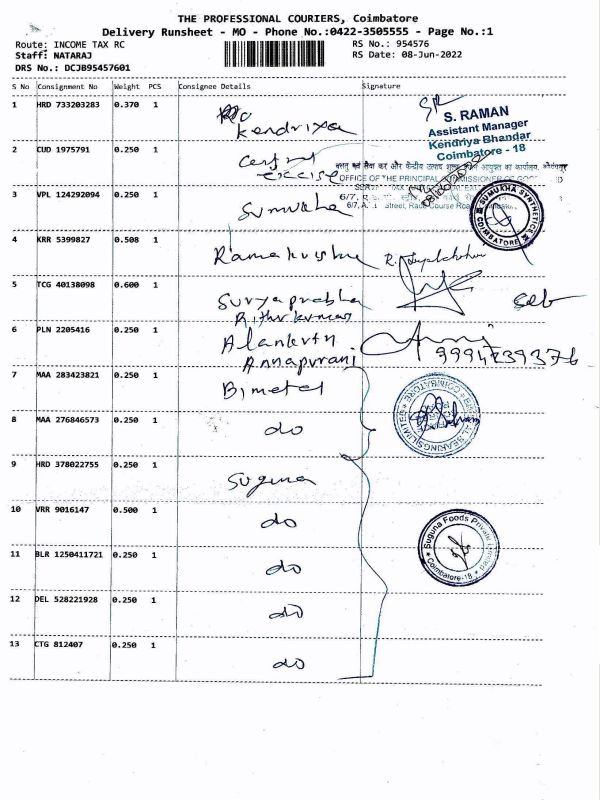 THE PROFESSIONAL COURIERS, Coimbatore
Delivery Runsheet - MO - Phone No.:0422-3505555 - Page No.:1
Route: INCOME TAX RC RS No.: 954576
Staff: NATARAJ RS Date: 08-Jun-2022
DRS No.: DCJB95457601
S No Consignment No Weight PCS Consignee Details Signature
1 HRD 733203283 0.370 1
Kendriya
S. RAMAN
Assistant Manager
Kendriya Bhandar
Coimbatore - 18
2 CUD 1975791 0.250 1
excise
OFFICE OF THE PRINCIPAL
3 VPL 124292094 0.250 1 Sumukha
6/7, A. Street, Race Course Road
SUMUKHA SYNTHETICS
COIMBATORE
4 KRR 5399827 0.508 1 Ramakrishna
5 TCG 40138098 0.600 1 Suryaprabha
6 PLN 2205416 0.250 1
Annapurani
9994239376
7 MAA 283423821 0.250 1 Bimetal
BEARINGS LIMITED
COIMBATORE
8 MAA 276846573 0.250 1 do
9 HRD 378022755 0.250 1 Suguna
10 VRR 9016147 0.500 1 do
Suguna Foods Private Limited
Coimbatore-18
11 BLR 1250411721 0.250 1 do
12 DEL 528221928 0.250 1 do
13 CTG 812407 0.250 1 do